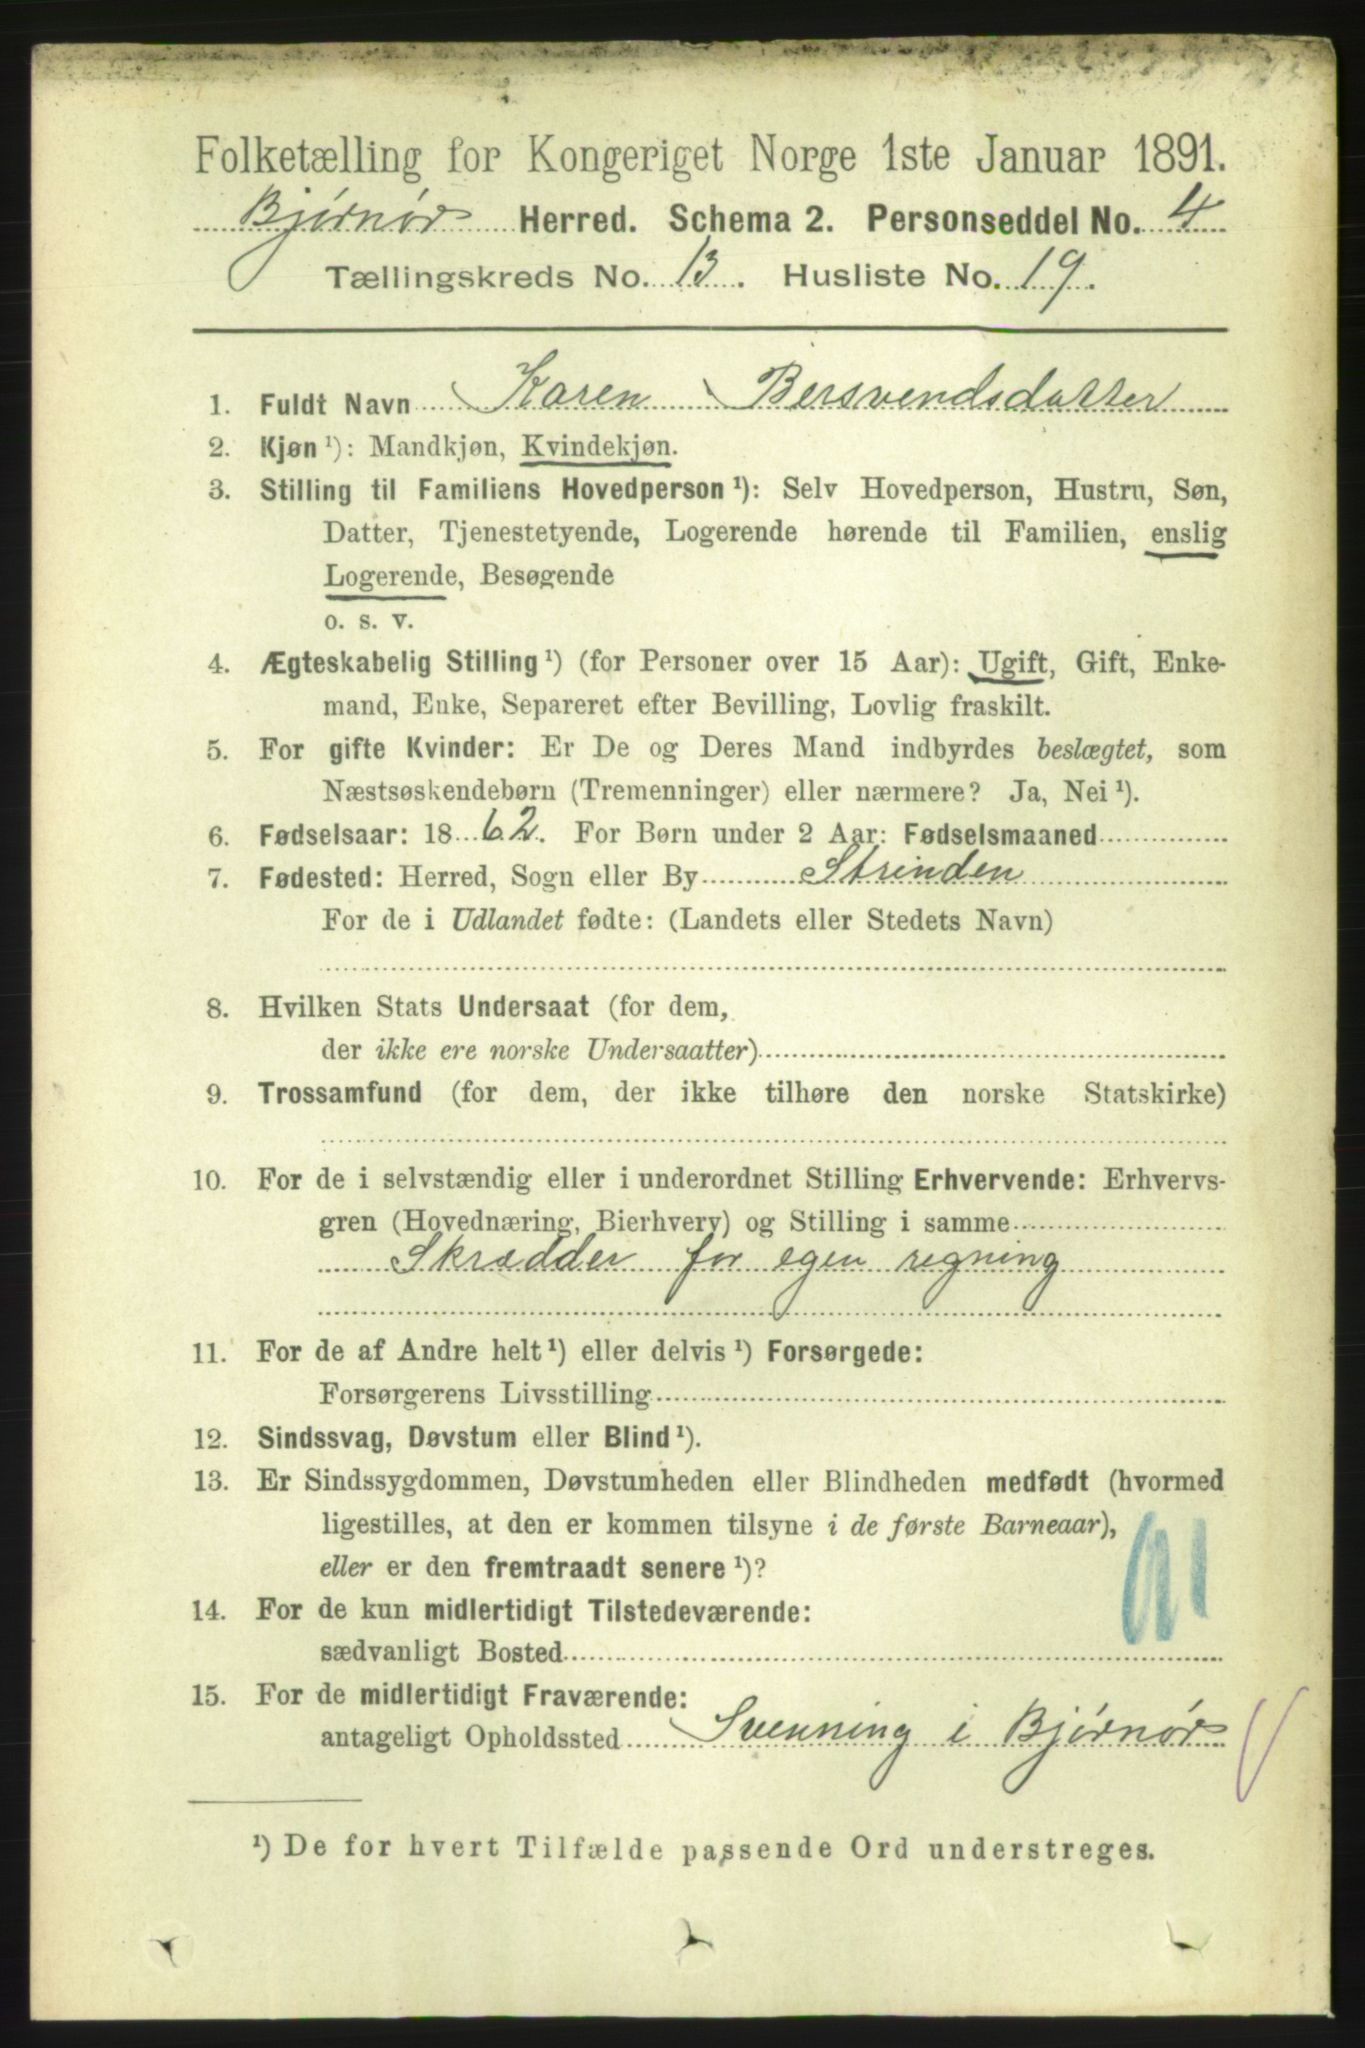 Folketælling for Kongeriget Norge 1ste Januar 1891.
Bjørnør Herred. Schema 2. Personseddel No. 4
Tællingskreds No. 13. Husliste No. 19.
1. Fuldt Navn Karen Bersvendsdatter
2. Kjøn¹): Mandkjøn, Kvindekjøn.
3. Stilling til Familiens Hovedperson¹): Selv Hovedperson, Hustru, Søn,
Datter, Tjenestetyende, Logerende hørende til Familien, enslig
Logerende, Besøgende
o. s. v.
4. Ægteskabelig Stilling¹) (for Personer over 15 Aar): Ugift, Gift, Enke-
mand, Enke, Separeret efter Bevilling, Lovlig fraskilt.
5. For gifte Kvinder: Er De og Deres Mand indbyrdes beslægtet, som
Næstsøskendebørn (Tremenninger) eller nærmere? Ja, Nei¹).
6. Fødselsaar: 1862. For Børn under 2 Aar: Fødselsmaaned
7. Fødested: Herred, Sogn eller By Strinden
For de i Udlandet fødte: (Landets eller Stedets Navn)
8. Hvilken Stats Undersaat (for dem,
der ikke ere norske Undersaatter)
9. Trossamfund (for dem, der ikke tilhøre den norske Statskirke)
10. For de i selvstændig eller i underordnet Stilling Erhvervende: Erhvervs-
gren (Hovednæring, Bierhverv) og Stilling i samme
Skrædder for egen regning
11. For de af Andre helt¹) eller delvis¹) Forsørgede:
Forsørgerens Livsstilling
12. Sindssvag, Døvstum eller Blind¹).
13. Er Sindssygdommen, Døvstumheden eller Blindheden medfødt (hvormed
ligestilles, at den er kommen tilsyne i de første Barneaar),
eller er den fremtraadt senere¹)?
14. For de kun midlertidigt Tilstedeværende:
sædvanligt Bosted
15. For de midlertidigt Fraværende:
antageligt Opholdssted Svenning i Bjørnør
¹) De for hvert Tilfælde passende Ord understreges.